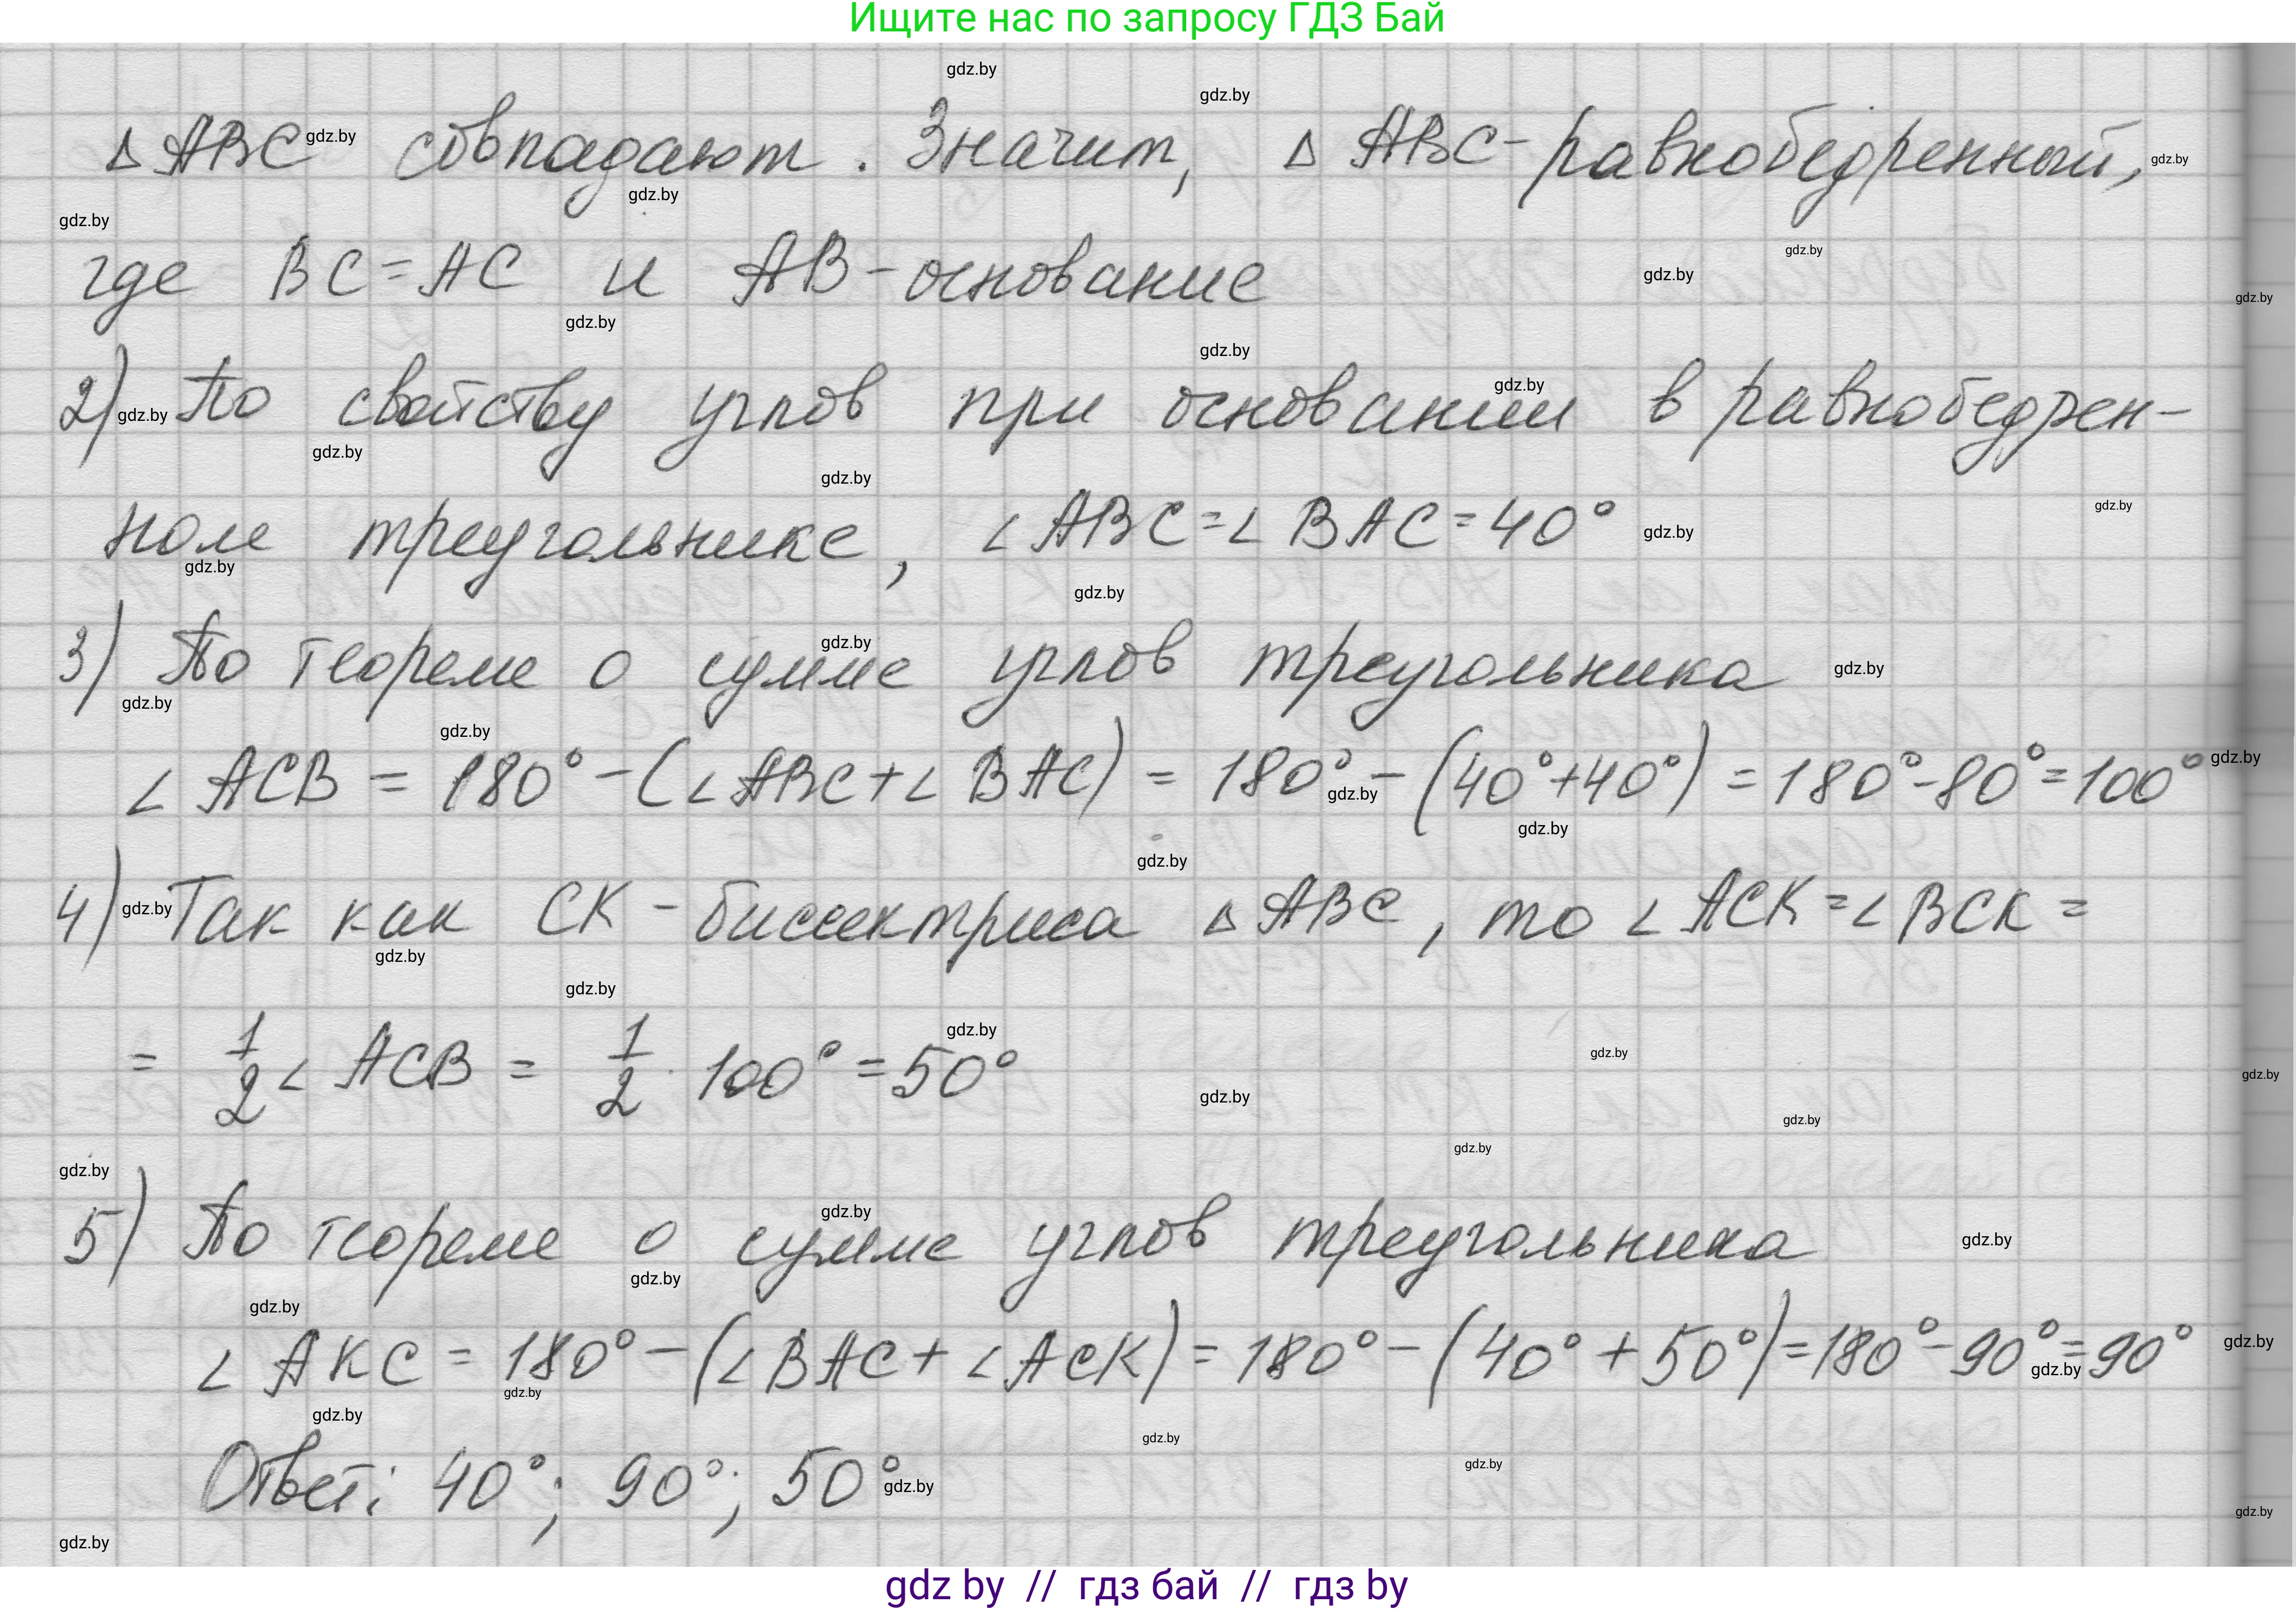 Ищите нас по запросу ГДЗ Бай
Δ ABC совпадают. Значит, Δ ABC - равнобедренный,
где BC = AC и AB - основание
2) По свойству углов при основании в равнобедрен-
ном треугольнике, ∠ ABC = ∠ BAC = 40°
3) По теореме о сумме углов треугольника
∠ ACB = 180° - (∠ ABC + ∠ BAC) = 180° - (40° + 40°) = 180° - 80° = 100°
4) Так как CK - биссектриса Δ ABC, то ∠ ACK = ∠ BCK =
= 1/2 ∠ ACB = 1/2 · 100° = 50°
5) По теореме о сумме углов треугольника
∠ AKC = 180° - (∠ BAC + ∠ ACK) = 180° - (40° + 50°) = 180° - 90° = 90°
Ответ: 40°; 90°; 50°
gdz by // гдз бай // гдз by